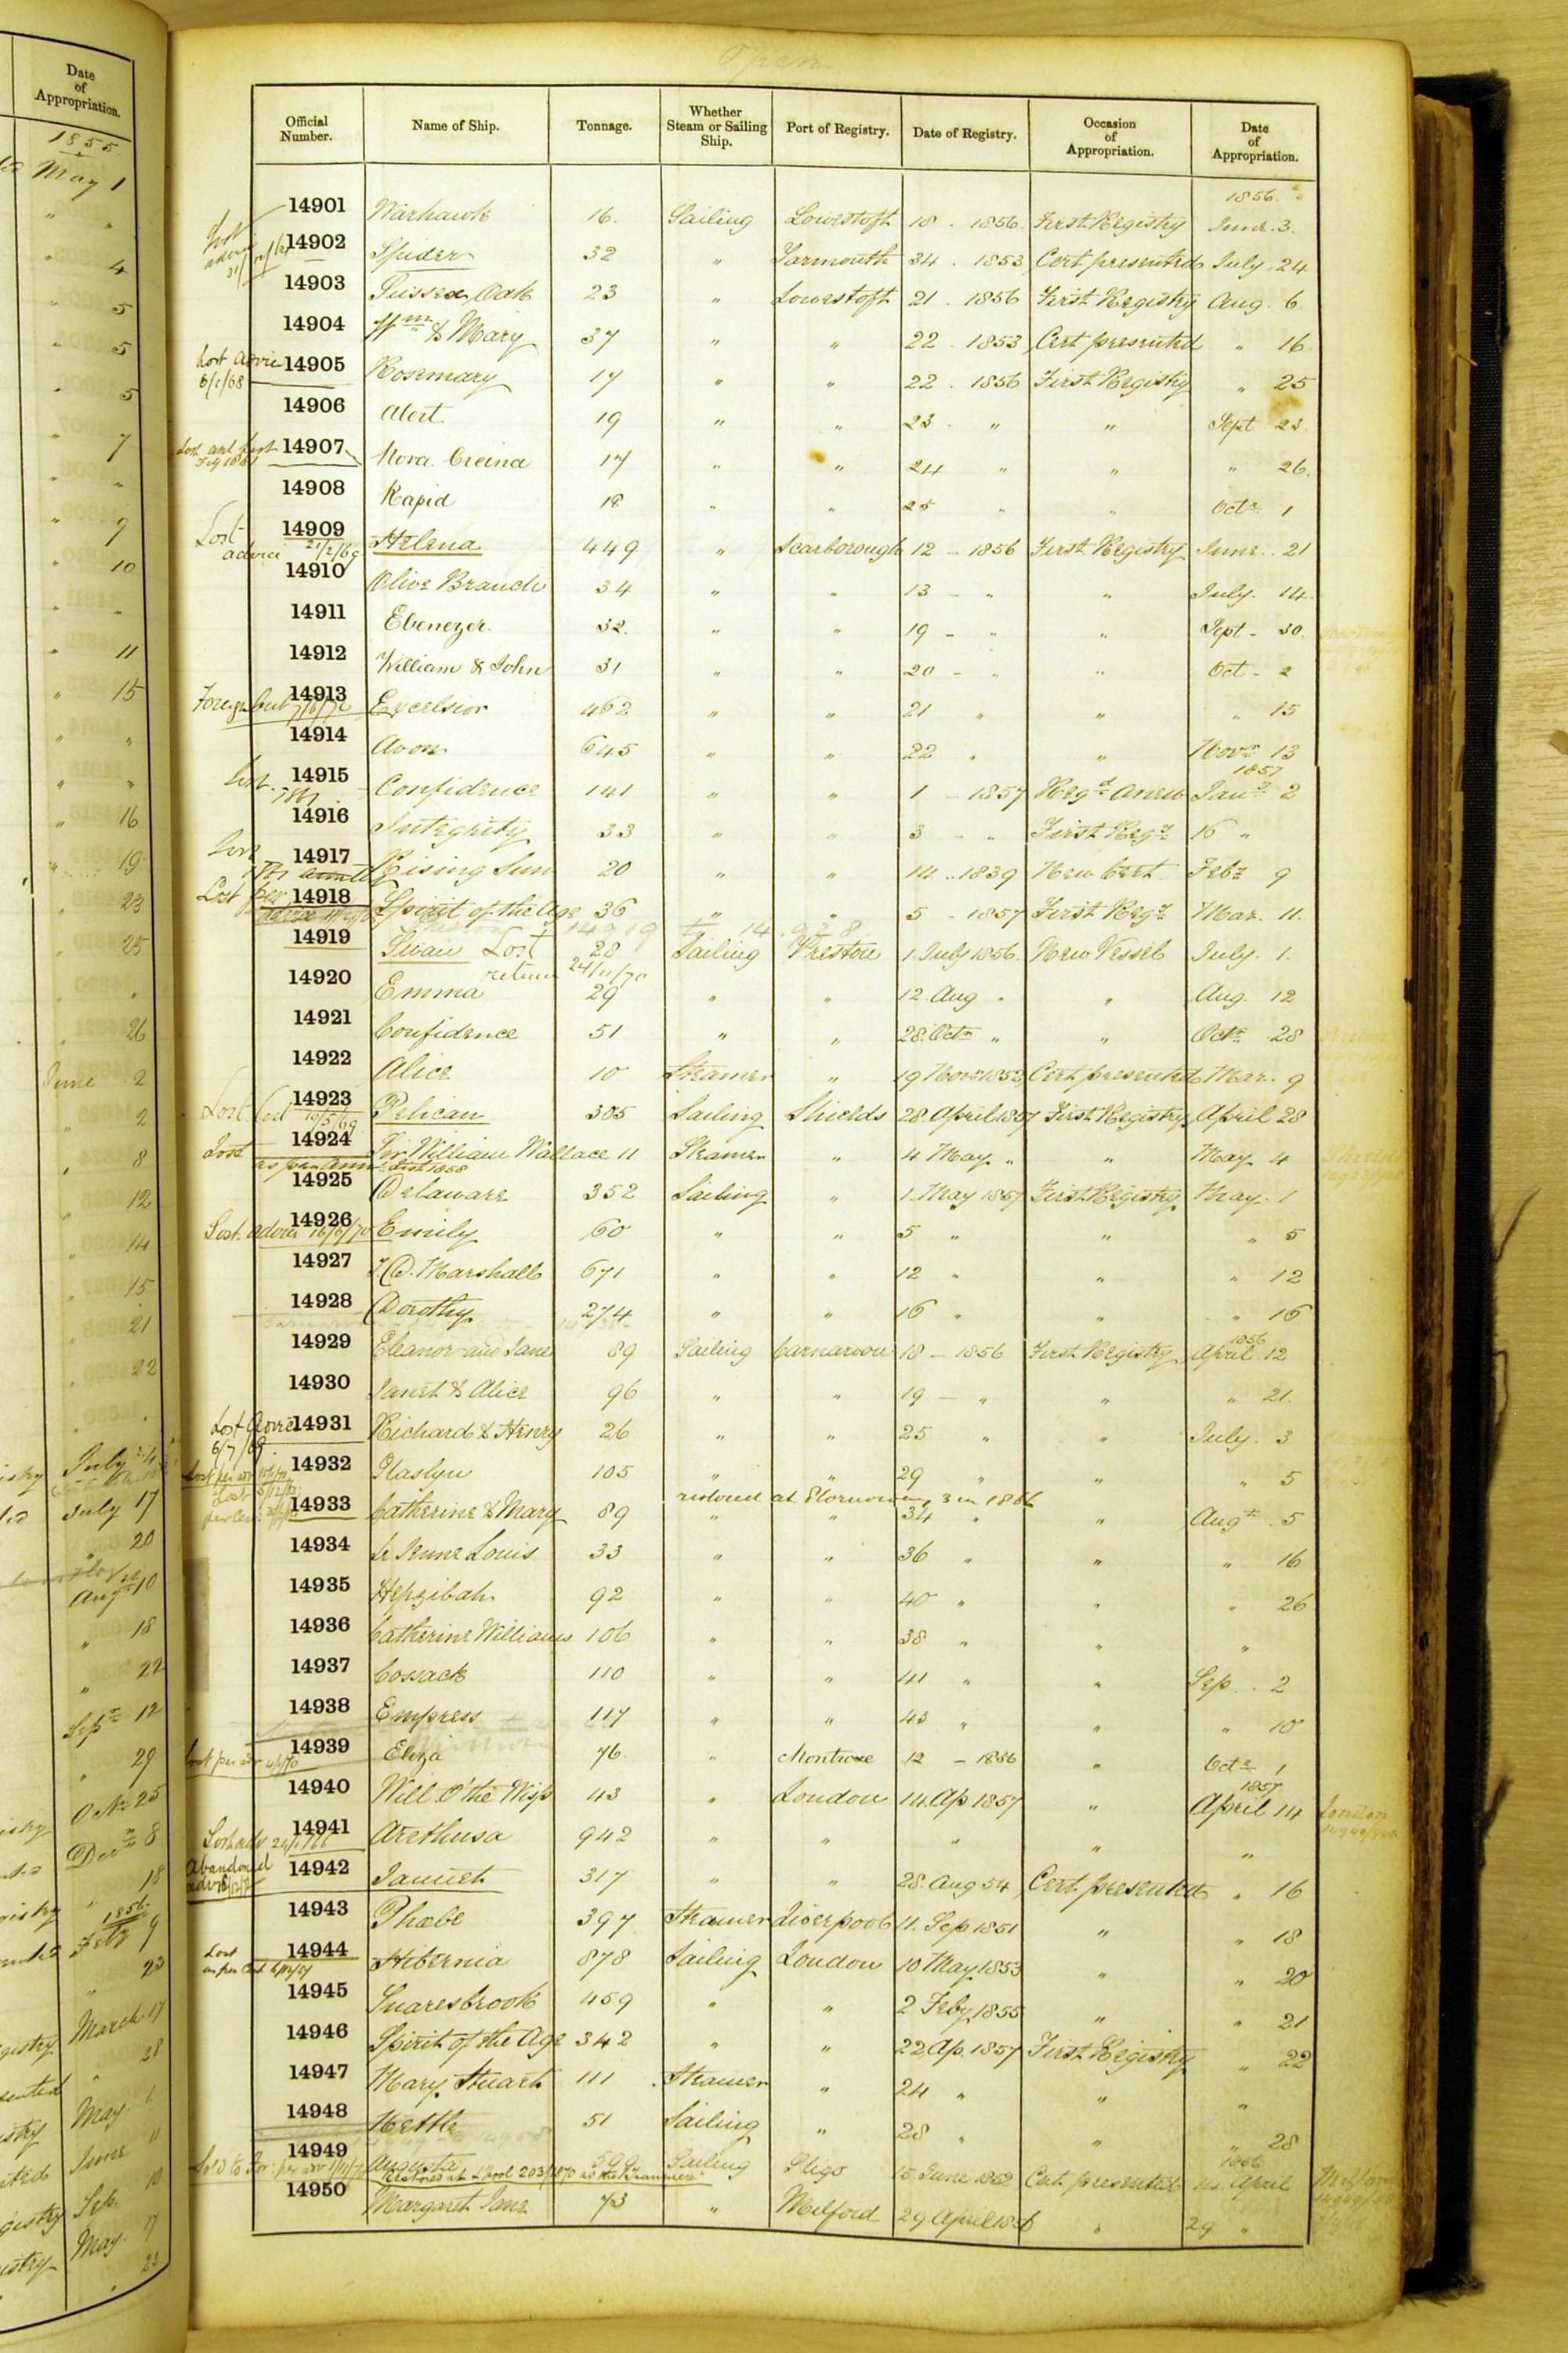 Date of Appropriation.
1855
May 1
"
" 4
" 5
" 5
" 5
" 7
" "
" 9
" 10
" "
" 11
" 15
" "
" "
" 16
" 19
" 23
" 25
" 26
June 2
" 2
" 8
" 12
" 14
" 15
" 21
" 22
July 4
July 17
" 20
Augt 10
" 18
" 22
Sepr 12
" 29
Octr 25
Decr 8
" 18
1856
Feby 9
" 23
March 17
" 28
May 1
June 11
Sep. 10
May 17
" 23
Open
Official Number. Name of Ship. Tonnage. Whether Steam or Sailing Ship. Port of Registry. Date of Registry. Occasion of Appropriation. Date of Appropriation.
1856
14901 Warhawk 16. Sailing Lowestoft 18 . 1856. First Registry June. 3.
Lost advice
14902 Spider 32 " Yarmouth 34 . 1853 Cert presented July . 24
14903 Sussex Oak 23 " Lowestoft 21 . 1856 First Registry Aug. 6
14904 Wm & Mary 37 " " 22 . 1853 Cert presented " 16
Lost Advice 6/1/68 14905 Rosemary 17 " " 22 . 1856 First Registry " 25
14906 Alert 19 " " 23 . " " Sept 23.
14907 Nora Creina 17 " " 24 " " " 26.
14908 Rapid 18 " " 25 " " Octr 1
Lost advice 21/2/69 14909 Helena 449 " Scarborough 12 - 1856 First Registry June . 21
14910 Olive Branch 34 " " 13 - " " July. 14.
14911 Ebenezer. 32. " " 19 - " " Sept - 30.
14912 William & John 31 " " 20 - " " Oct - 2
Foreign 14913 Excelsior 462 " " 21 " " " 15
14914 Avon 645 " " 22 " " Novr 13
1857
Lost. 1861 14915 Confidence 141 " " 1 - 1857 Regd Anew Jany 2
14916 Integrity 33 " " 3 - " First Regy 16 "
Lost 14917 Rising Sun 20 " " 14 .. 1839 New Cert Feby 9
Lost per advice 14918 Spirit of the Age 36 " " 5 - 1857 First Regy Mar. 11.
14919 Swan Lost return 24/11/70 28 Sailing Preston 1 July 1856. New Vessel July. 1.
14920 Emma 29 " " 12. Aug " " Aug. 12
14921 Confidence 51 " " 28. Octr " " Octr 28
14922 Alice 10 Steamer " 19 Novr 1852 Cert presented Mar. 9
Lost Cert 19/5/69 14923 Pelican 305 Sailing Shields 28 April 1857 First Registry April 28
Lost as per Annl List 1858 14924 Sir William Wallace 11 Steamer " 4 May " " May 4
14925 Delaware 352 Sailing " 1. May 1857 First Registry May. 1
Lost. advice 16/6/70 14926 Emily 60 " " 5 " " " 5
14927 T.D. Marshall 671 " " 12 " " " 12
14928 Dorothy 274 " " 16 " " " 16
1856
14929 Eleanor and Jane 89 Sailing Carnarvon 18 - 1856 First Registry April 12
14930 Janet & Alice 96 " " 19 - " " " 21.
Lost Advice 6/7/69 14931 Richard & Henry 26 " " 25 " " July. 3
14932 Glaslyn 105 " " 29 " " " 5
14933 Catherine & Mary 89 " " 34 " " Augt 5
14934 Le Jeune Louis 33 " " 36 " " " 16
14935 Hepzibah 92 " " 40 " " " 26
14936 Catherine Williams 106 " " 38 " " "
14937 Cossack 110 " " 41 " " Sep. . 2
14938 Empress 117 " " 43 " " " 10
Lost per adv 4/1/70 14939 Eliza 76. " Montrose 12 - 1856 " Octr 1
1857
14940 Will O' the Wisp 43 " London 14. Ap 1857 " April 14 London
14941 Arethusa 942 " " " " "
Abandoned 14942 Jamuet 317 " " 28. Aug 54 Cert. presented " 16
14943 Phœbe 397 Steamer Liverpool 11. Sep 1851 " " 18
Lost as per Cert 14944 Hibernia 878 Sailing London 10 May 1853 " " 20
14945 Snaresbrook 459 " " 2 Feby 1855 " " 21
14946 Spirit of the Age 342 " " 22 Ap. 1857 First Registry " 22
14947 Mary Stuart 111 Steamer " 24 " " "
14948 Nettle 51 Sailing " 28 " " " 28
1856
Sold to For. per adv 14949 Augusta 599 Sailing Sligo 15 June 1852 Cert presented April
14950 Margaret Jane 73 " Milford 29 April 1856 " 29 "